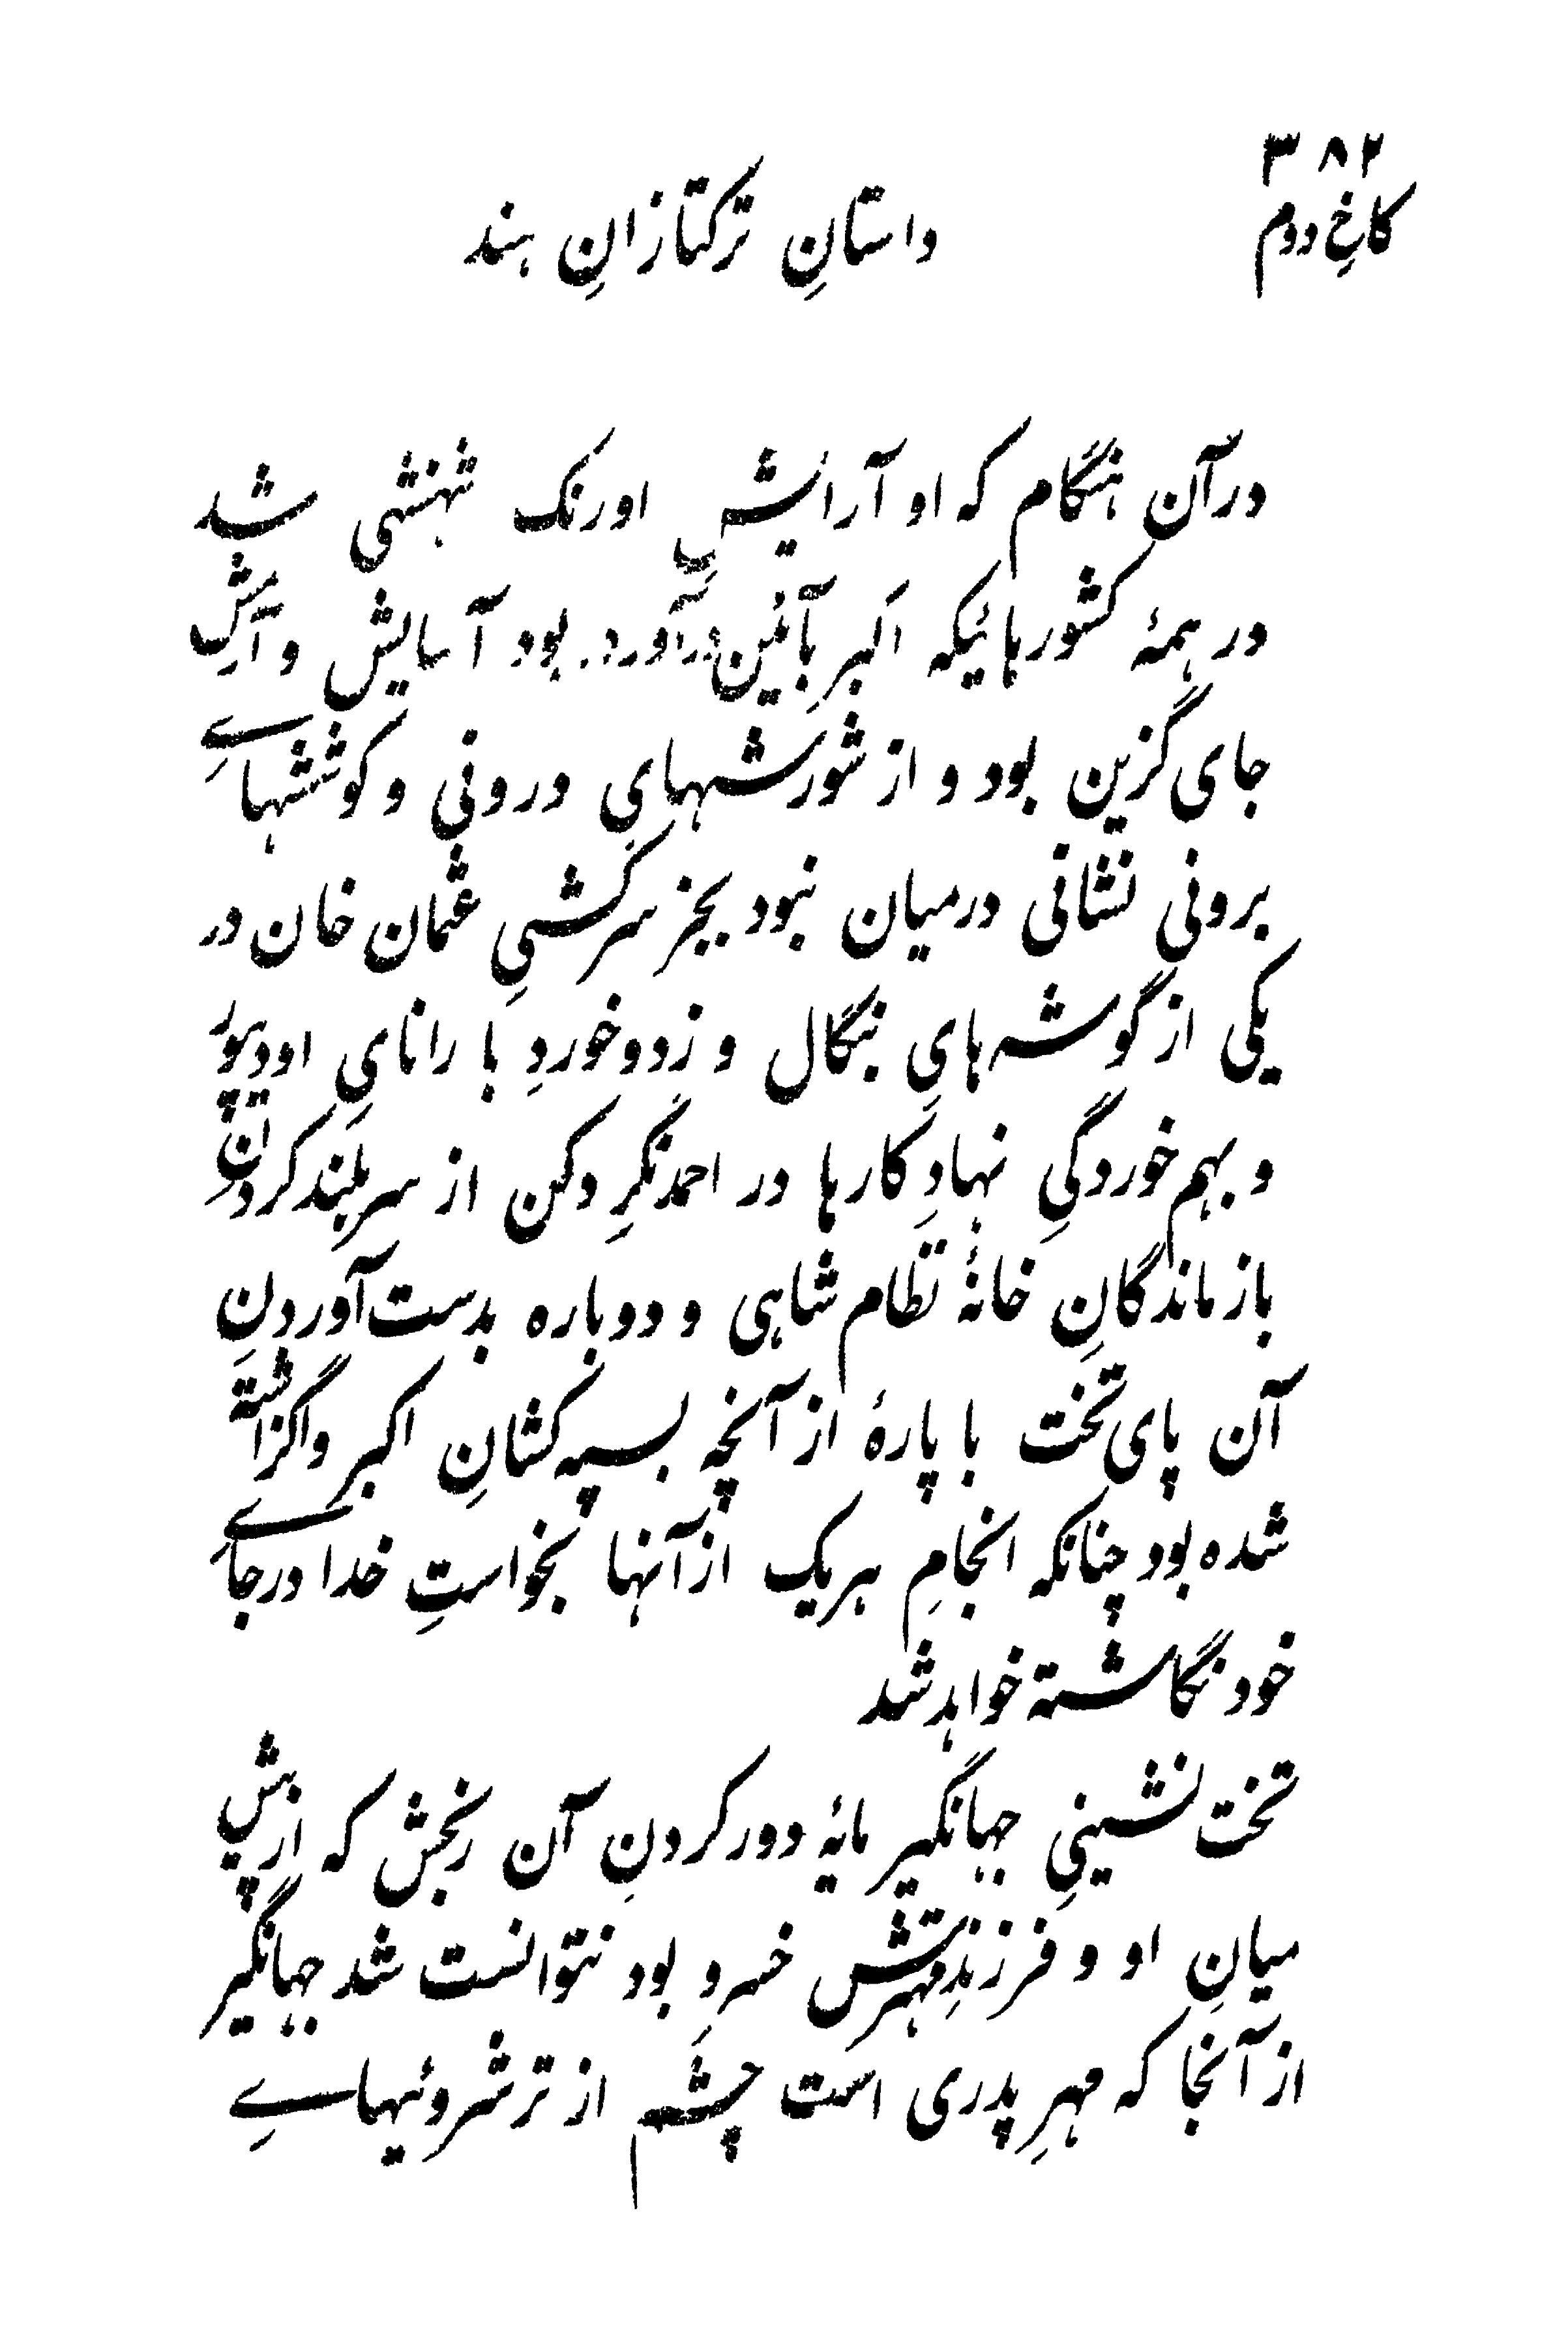 ۳۸۲
کاخِ دوم
داستانِ ترکتازانِ هند
درآن هنگام که او آرایشِ اورنک شهنشهی شد
در همهٔ کشورهائیکه اکبر بآئین درآورده بود آسایش و آرامش
جای گزین بود و از شورشهایِ درونی و کوششهاے
برونی نشانی درمیان نبود بجز سرکشیِ عثمان خان در
یکی از گوشه‌هایِ بنگال و زد و خوردِ با رانایِ اودیپور
و بهم خوردگیِ نهادِ کارها در احمدنگرِ دکن از سربلند کردنِ
بازماندگانِ خانهٔ نظام شاهی و دوباره بدست آوردنِ
آن پای تخت با پارهٔ از آنچه بسپه کشانِ اکبر واگزاشته
شده بود چنانکه انجامِ هریک از آنها بخواستِ خدا درجاے
خود نگاشته خواهد شد
تخت نشینیِ جهانگیر مایهٔ دور کردنِ آن رنجش که از پیش
میانِ او و فرزندِ مهترش خسرو بود نتوانست شد جهانگیر
از آنجا که مهرِ پدری است چشم از ترشروئیهاے